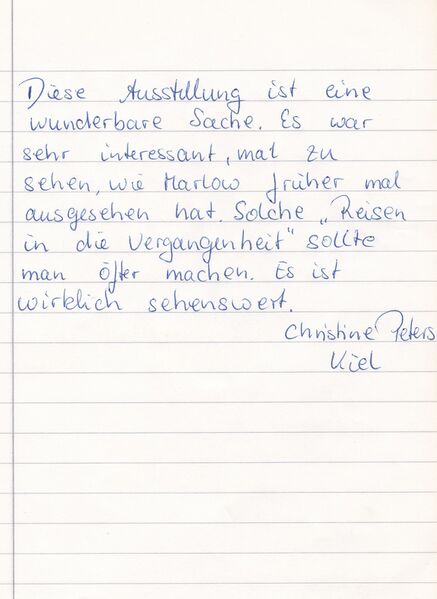 Diese Ausstellung ist eine
wunderbare Sache. Es war
sehr interessant, mal zu
sehen, wie Marlow früher mal
ausgesehen hat. Solche „Reisen
in die Vergangenheit“ sollte
man öfter machen. Es ist
wirklich sehenswert.
Christine Peters
Kiel